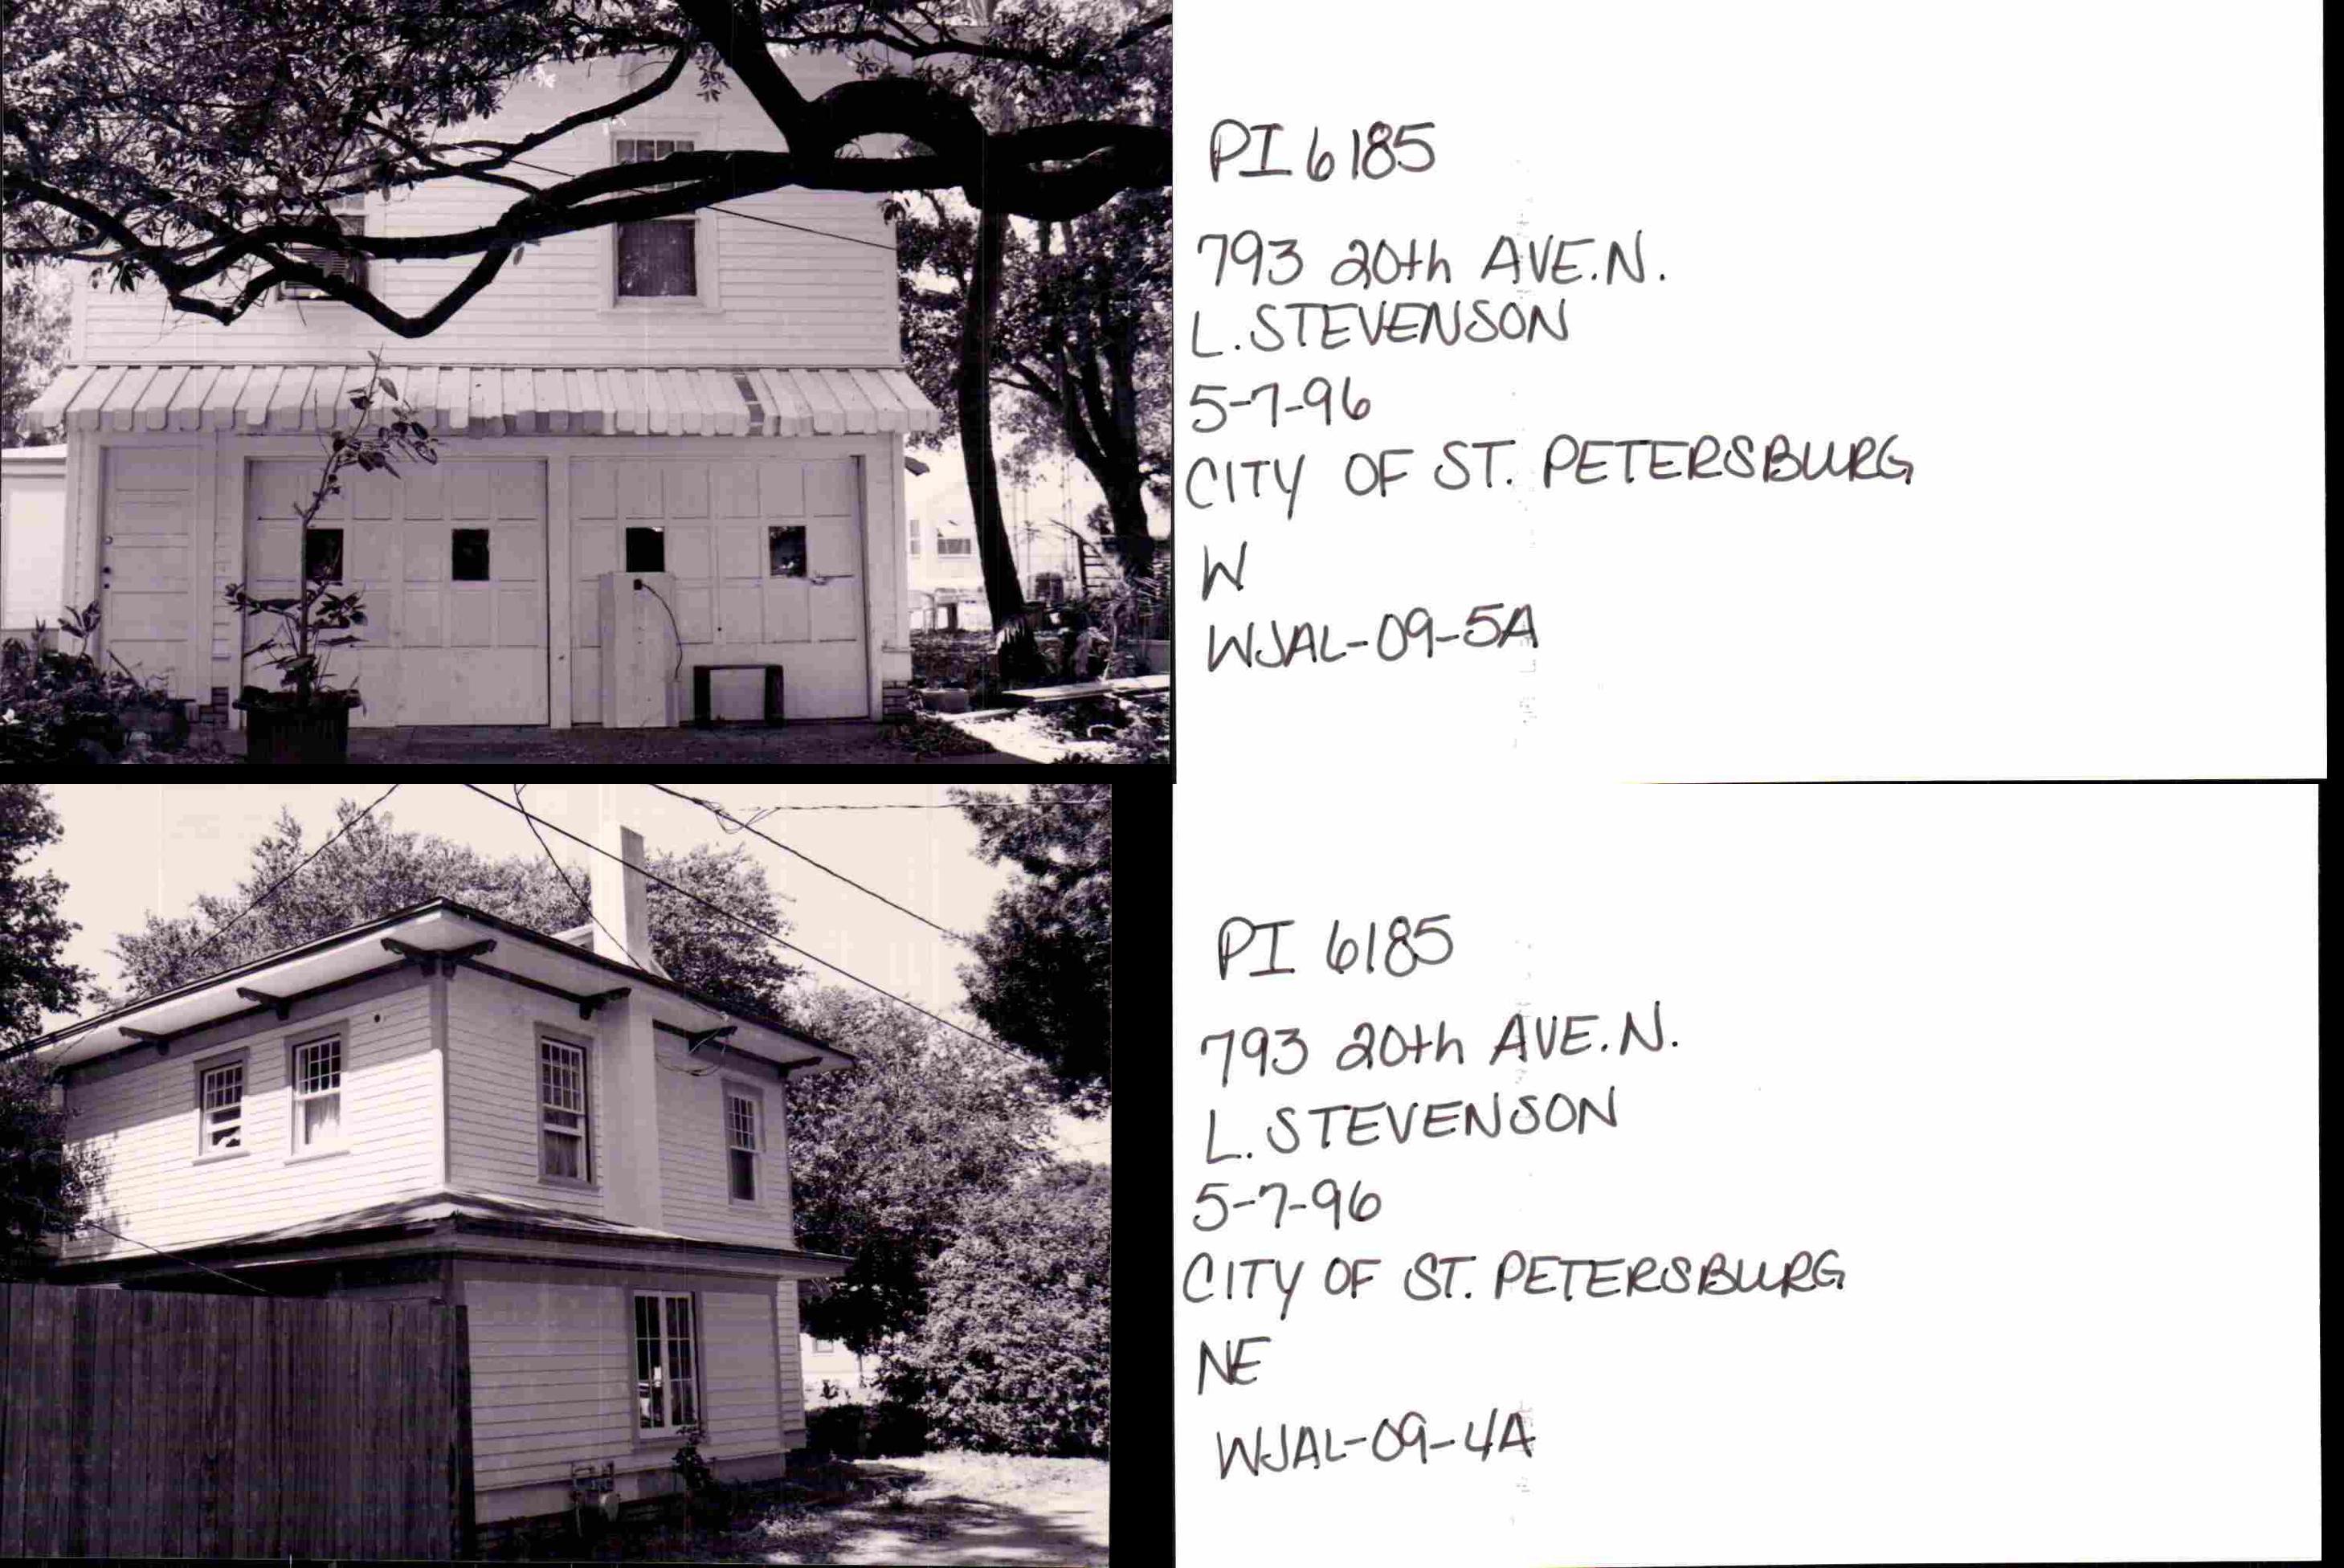 PI 6185
793 20th AVE. N.
L. STEVENSON
5-7-96
CITY OF ST. PETERSBURG
W
WJAL-09-5A
PI 6185
793 20th AVE. N.
L. STEVENSON
5-7-96
CITY OF ST. PETERSBURG
NE
WJAL-09-4A